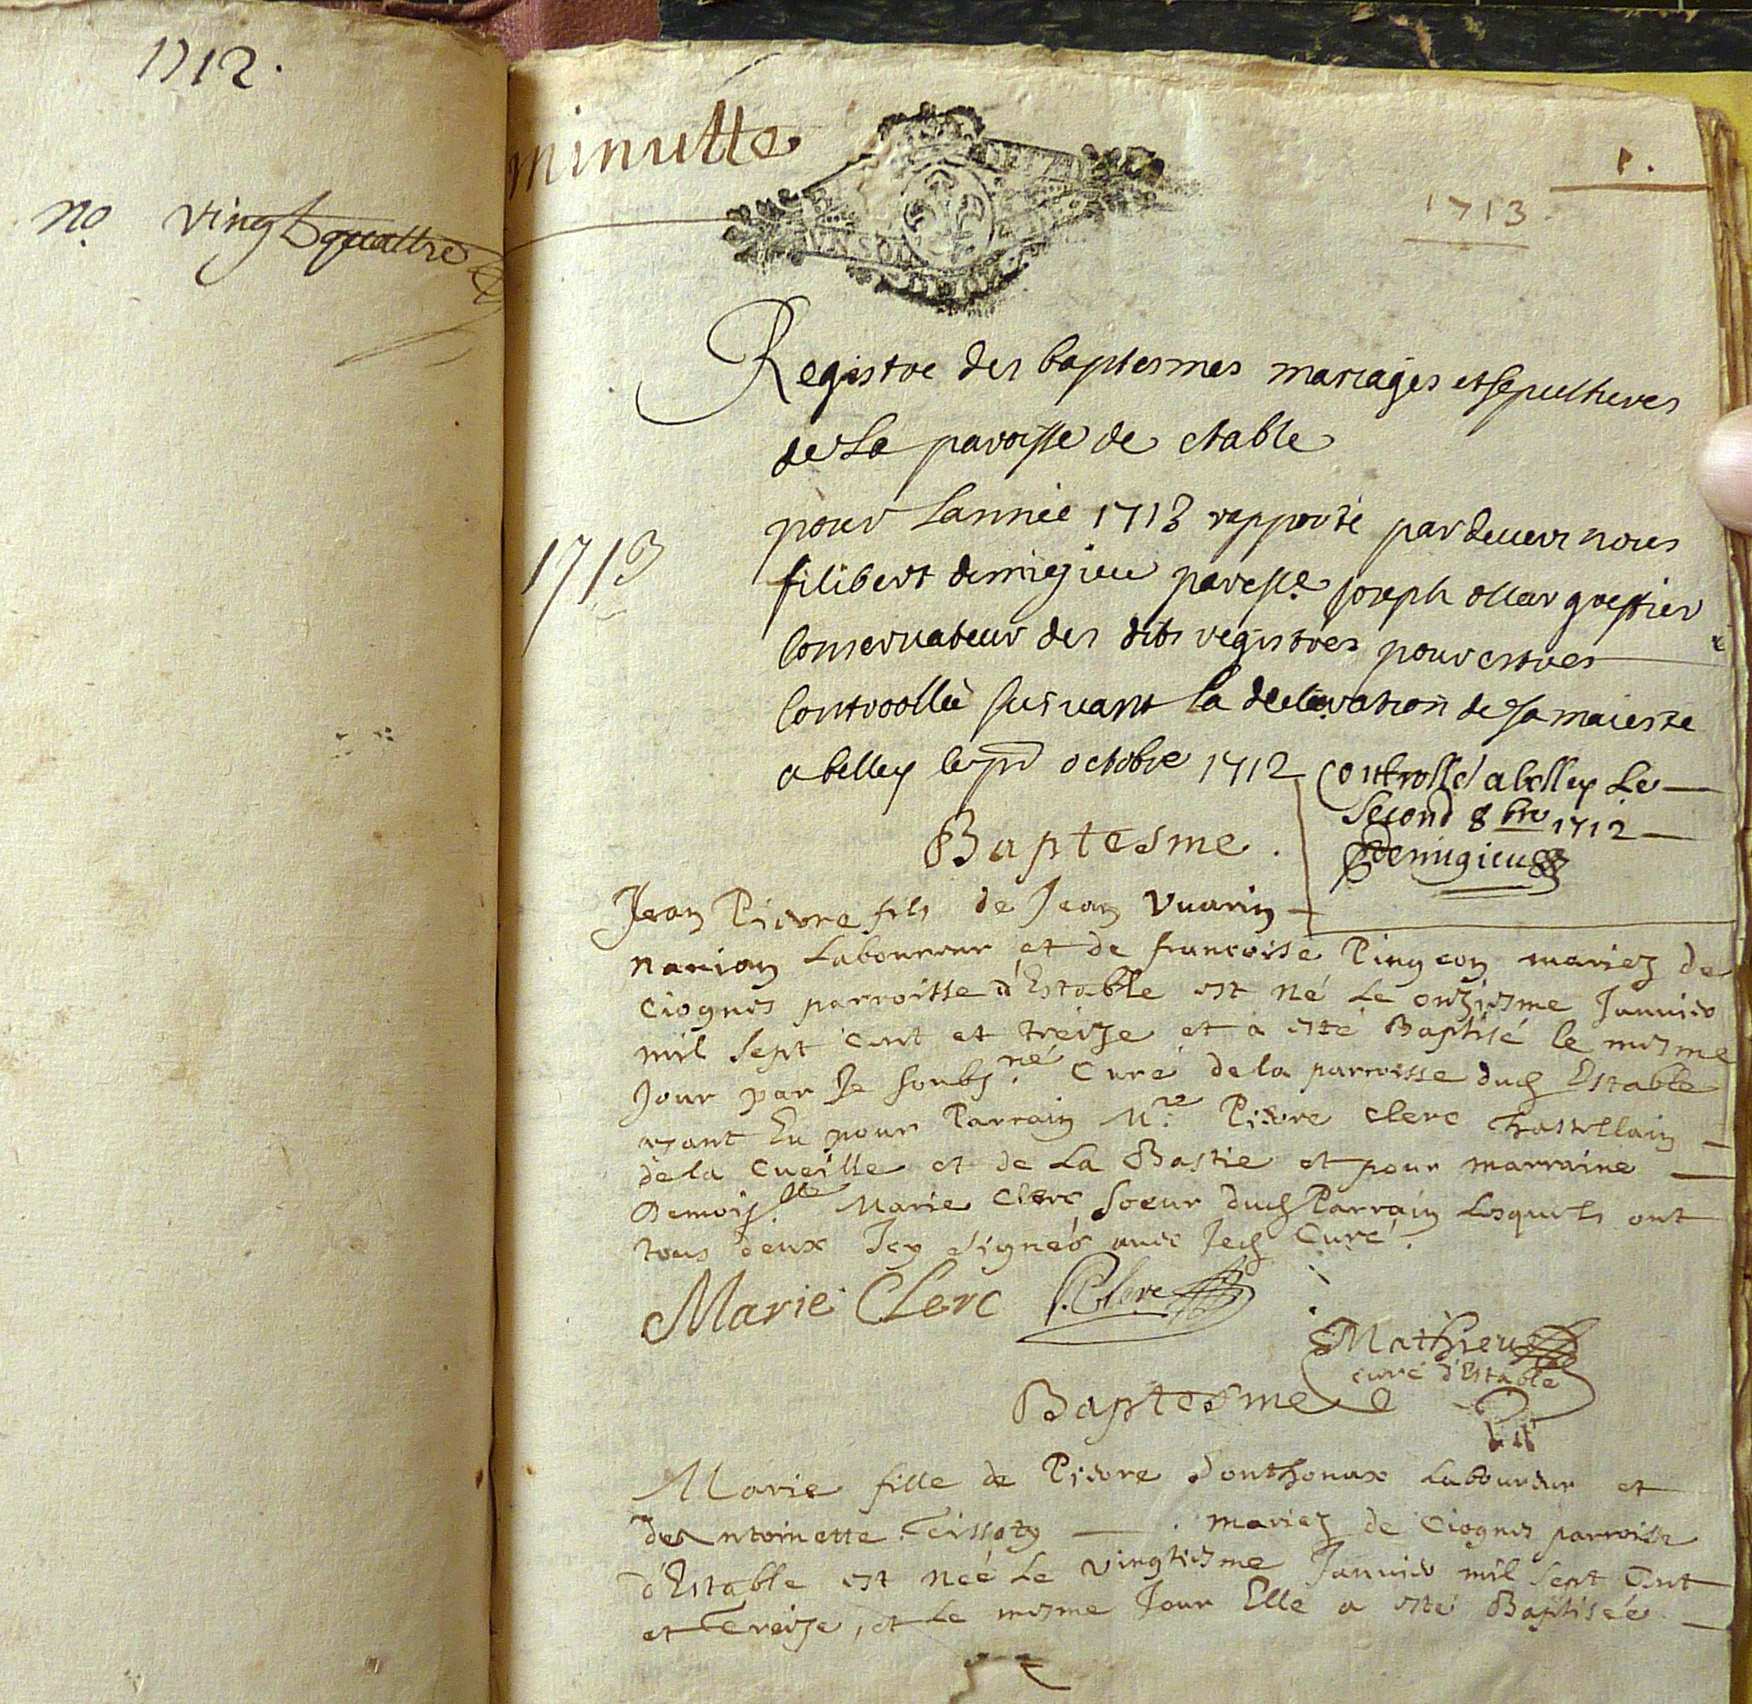 1712.
no. vingt quattre
minutte
UN SOL
1.
1713
Registre des baptesmes mariages et sepultures
de La paroisse de etable
pour Lannée 1713 rapporté pardevers nous
1713
filibert demigieu par esse Joseph greffier
Conservateur des dits registres pour estres
Controollé suivant la declaration de sa maieste
a belley le pr octobre 1712
Controllé a belley Le
Second 8bre 1712
Demigieu
Baptesme.
Jean Pierre fils de Jean Vuarin
Laboureur et de francoise Pingeon mariez de
Ciognes parroisse d'Estable est né Le onziesme Janvier
mil sept cent et treize et a esté Baptisé le mesme
Jour par Je soubs.né Curé de la parroisse dud Estable
ayant Eu pour Parrain Mre Pierre Clerc Chastellain
de la Cueille et de La Bastie et pour marraine
Demois.lle Marie Clerc Soeur dud Parrain Lesquels ont
tous deux Icy signés avec Led Curé.
Marie Clerc P. Clerc
Mathieu
curé d'Estable
Baptesme
Marie fille de Pierre Donthonax Laboureur et
de Antoinette Tissot mariez de Ciognes parroisse
d'Estable est née Le vingtiesme Janvier mil sept Cent
et Treize, et Le mesme Jour Elle a esté Baptisée